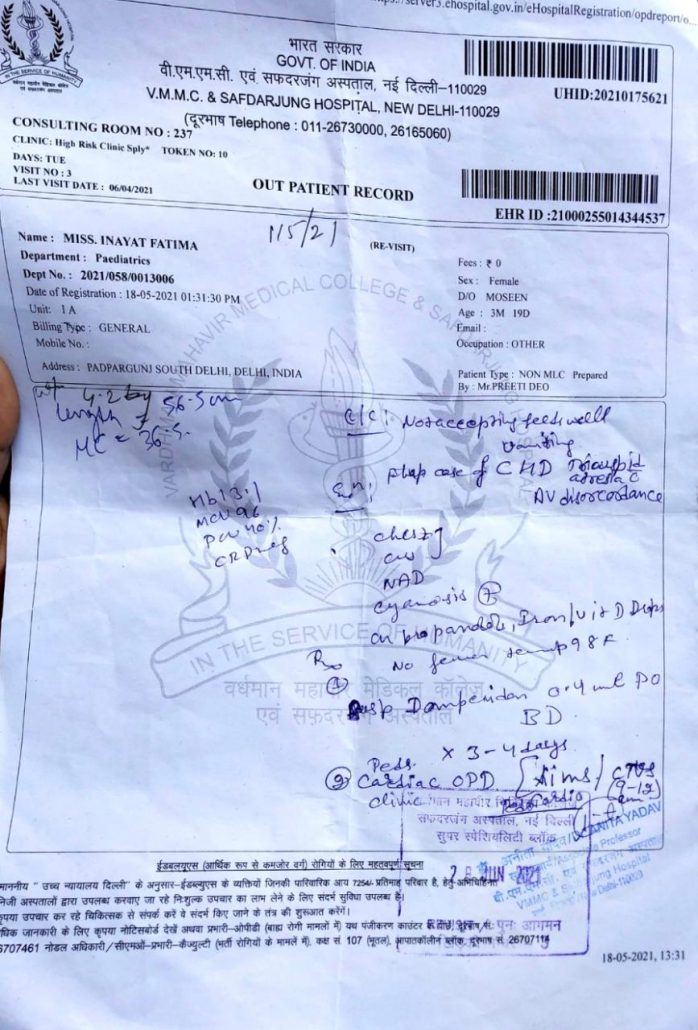 server3.ehospital.gov.in/eHospitalRegistration/opdreport/o...
भारत सरकार
GOVT. OF INDIA
वी.एम.एम.सी. एवं सफदरजंग अस्पताल, नई दिल्ली-110029
V.M.M.C. & SAFDARJUNG HOSPITAL, NEW DELHI-110029
(दूरभाष Telephone : 011-26730000, 26165060)
IN THE SERVICE OF HUMANITY
UHID:20210175621
CONSULTING ROOM NO : 237
CLINIC: High Risk Clinic Sply* TOKEN NO: 10
DAYS: TUE
VISIT NO : 3
LAST VISIT DATE : 06/04/2021
OUT PATIENT RECORD
EHR ID :21000255014344537
Name : MISS. INAYAT FATIMA
1/5/21
(RE-VISIT)
Department : Paediatrics
Dept No. : 2021/058/0013006
Date of Registration : 18-05-2021 01:31:30 PM
Unit: 1 A
Billing Type : GENERAL
Mobile No. :
Address : PADPARGUNJ SOUTH DELHI, DELHI, INDIA
Fees : ₹ 0
Sex : Female
D/O MOSEEN
Age : 3M 19D
Email :
Occupation : OTHER
Patient Type : NON MLC Prepared
By : Mr.PREETI DEO
wt 4.2 kg
length = 56.5 cm
HC = 36.5
C/C: Not accepting feeds well
vomiting
case of CHD
AV discordance
Hb 13.1
MCV 96
PCV 40%
CRP neg
chest
CVS
NAD
cyanosis
on propanolole, Iron/vit D Drops
No fever temp 98 F
Rx
① Domperidon 0.4 ml PO
BD
x 3-4 days
Peds
② Cardiac OPD [Aims / CTVS
clinic (9-12)
IN THE SERVICE OF HUMANITY
वर्धमान महावीर मेडिकल कॉलेज
एवं सफदरजंग अस्पताल
सफदरजंग अस्पताल, नई दिल्ली
सुपर स्पेशियलिटी ब्लॉक
JUN 2021
ANITA YADAV
Professor
VMMC & Safdarjung Hospital
New Delhi-110029
पुनः आगमन
ईडबलयूएस (आर्थिक रूप से कमजोर वर्ग) रोगियों के लिए महत्वपूर्ण सूचना
माननीय " उच्च न्यायालय दिल्ली" के अनुसार-ईडब्लयुएस के व्यक्तियों जिनकी पारिवारिक आय 7254/- प्रतिमाह परिवार है, हेतु
निजी अस्पतालों द्वारा उपलब्ध करवाए जा रहे निःशुल्क उपचार का लाभ लेने के लिए संदर्भ सुविधा उपलब्ध है।
कृपया उपचार कर रहे चिकित्सक से संपर्क करें वे संदर्भ किए जाने के तंत्र की शुरूआत करेंगे।
अधिक जानकारी के लिए कृपया नोटिसबोर्ड देखें अथवा प्रभारी-ओपीडी (बाह्य रोगी मामलों में) यथ पंजीकरण काउंटर के पीछे, दूरभाष सं:
26707461 नोडल अधिकारी/सीएमओ-प्रभारी-कैज्युल्टी (भर्ती रोगियों के मामलें में). कक्ष सं 107 (भूतल), आपातकालीन ब्लॉक, दूरभाष सं. 26707114
18-05-2021, 13:31